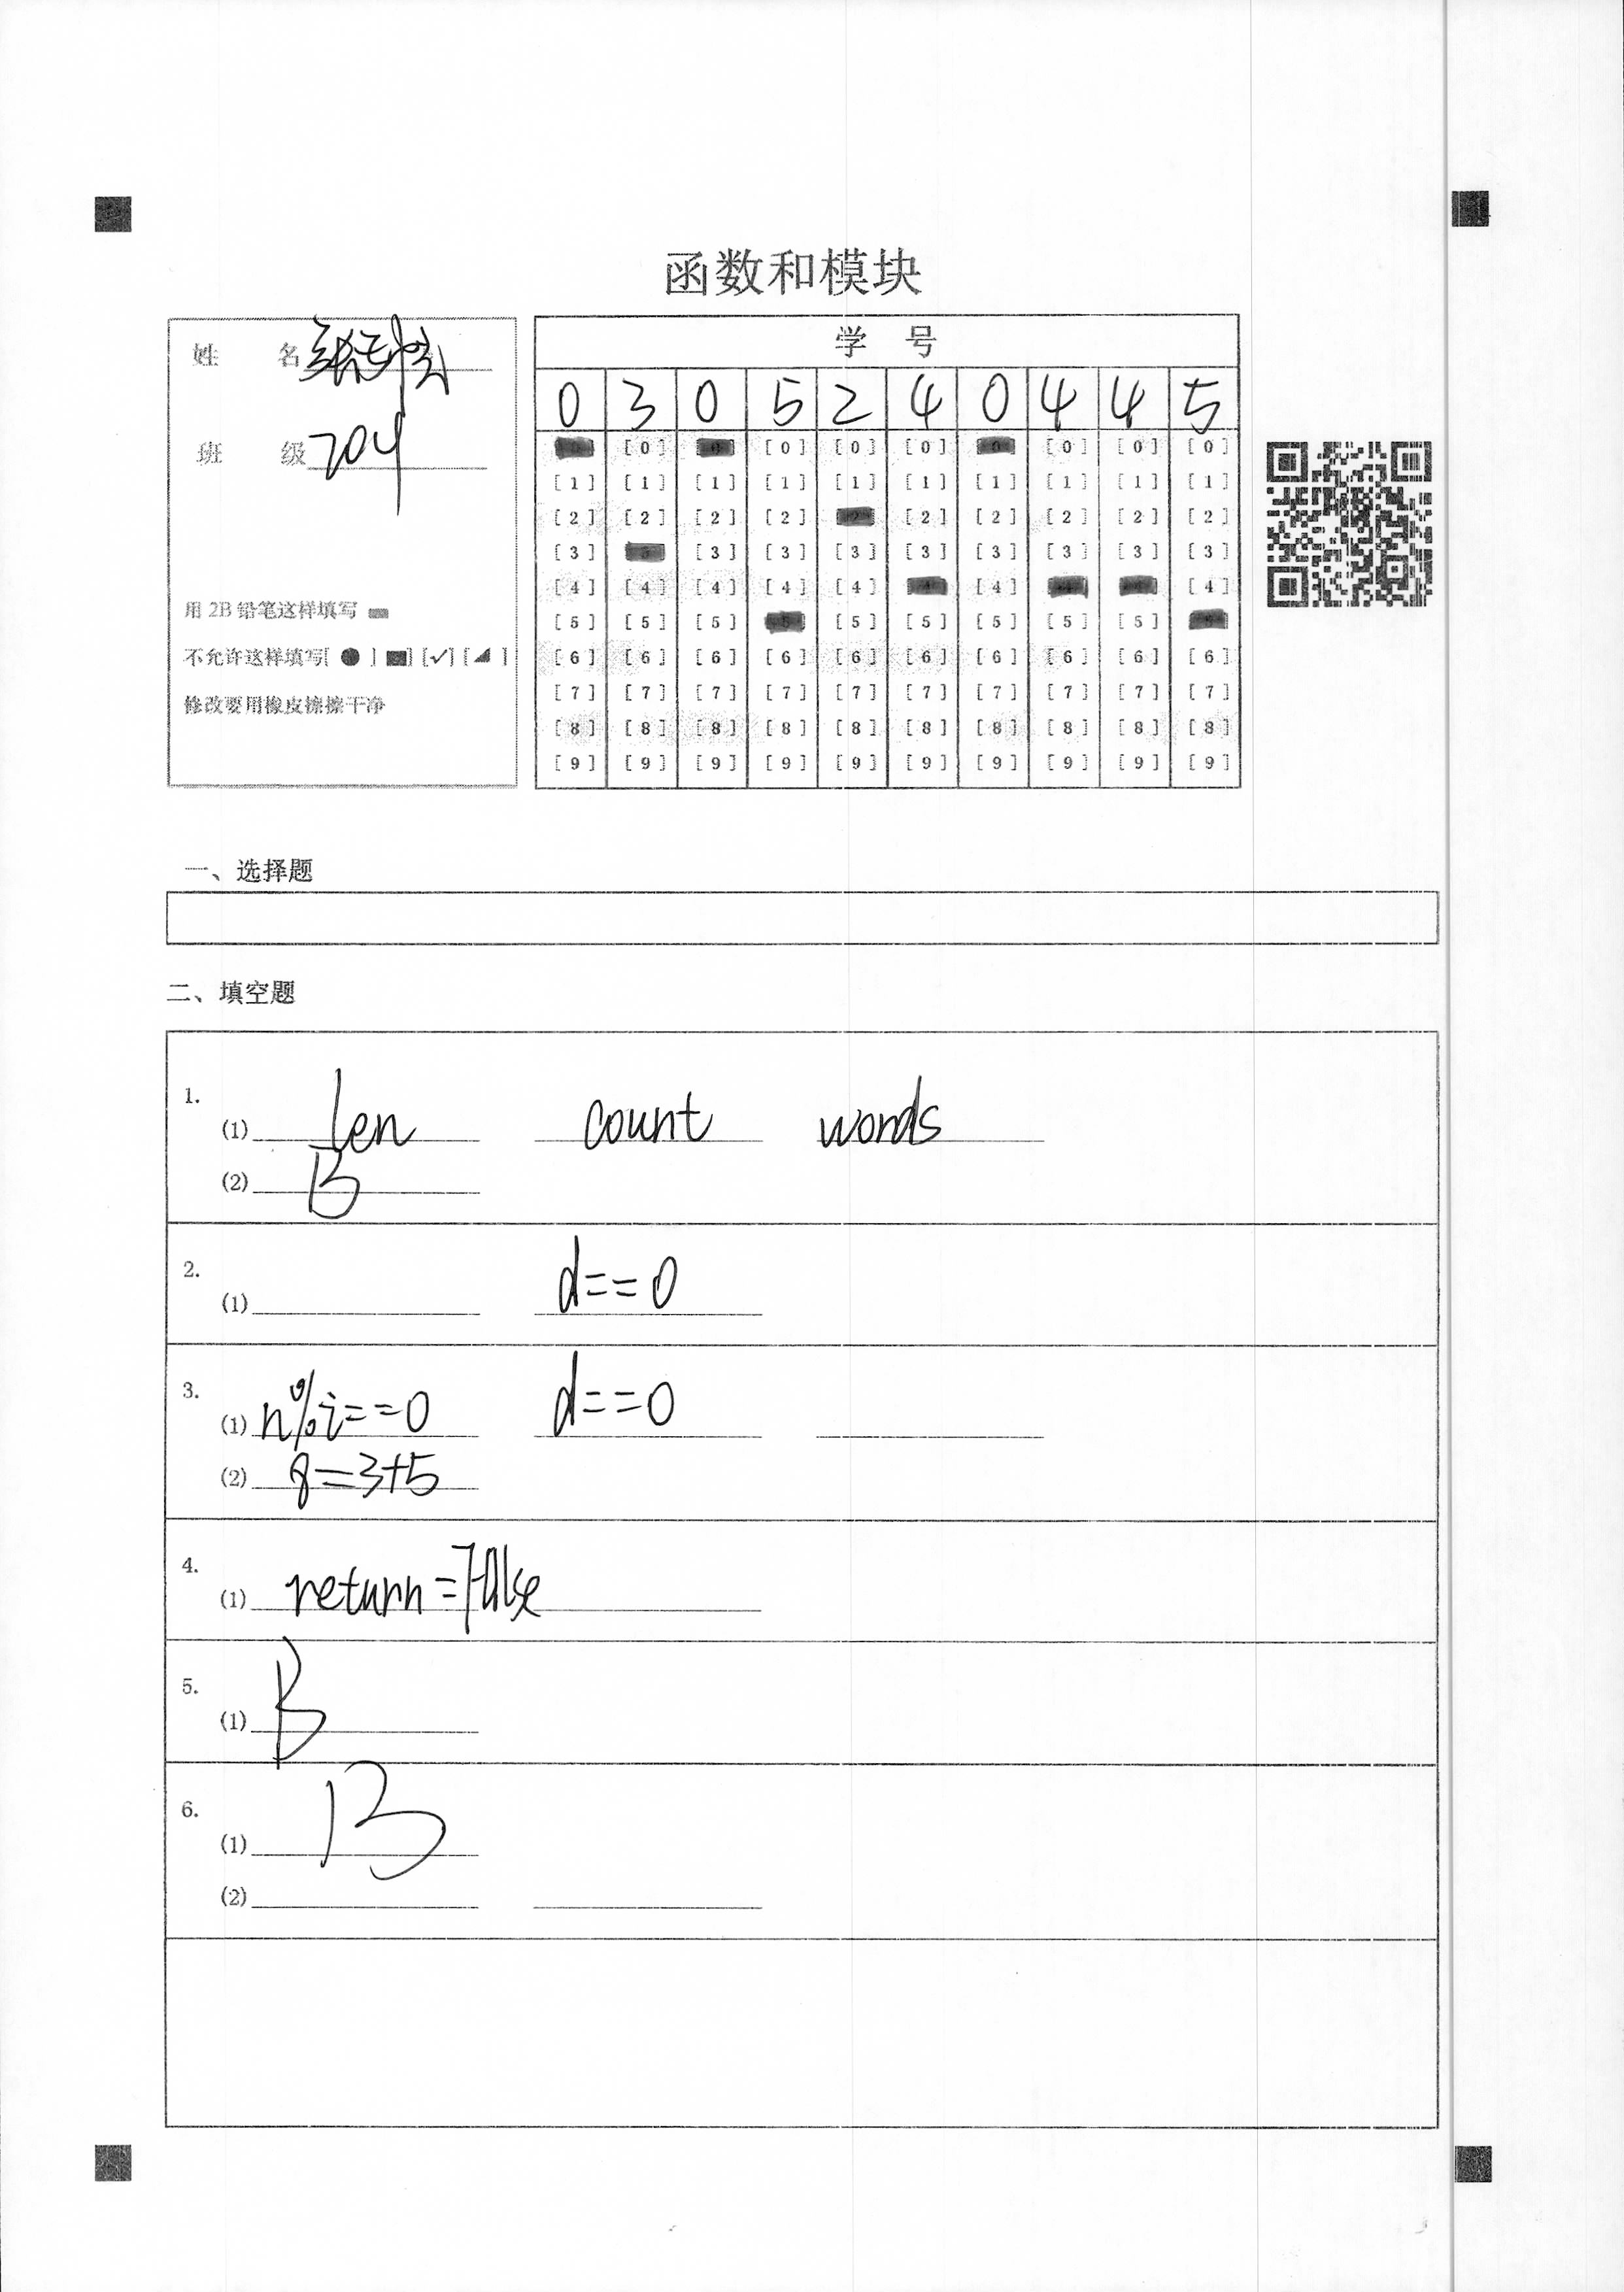 函数和模块
姓 名
班 级 204
用 2B 铅笔这样填写
不允许这样填写[ ● ] [✓] [ ]
修改要用橡皮擦擦干净
学 号
0 3 0 5 2 4 0 4 4 5
[0] [0] [0] [0] [0] [0] [0]
[1] [1] [1] [1] [1] [1] [1] [1] [1] [1]
[2] [2] [2] [2] [2] [2] [2] [2] [2] [2]
[3] [3] [3] [3] [3] [3] [3] [3] [3]
[4] [4] [4] [4] [4] [4] [4]
[5] [5] [5] [5] [5] [5] [5] [5]
[6] [6] [6] [6] [6] [6] [6] [6] [6] [6]
[7] [7] [7] [7] [7] [7] [7] [7] [7] [7]
[8] [8] [8] [8] [8] [8] [8] [8] [8] [8]
[9] [9] [9] [9] [9] [9] [9] [9] [9] [9]
一、选择题
二、填空题
1.
(1) len count words
(2) B
2.
(1) d==0
3.
(1) n%i==0 d==0
(2) 8=3+5
4.
(1) return=False
5.
(1) B
6.
(1) B
(2)